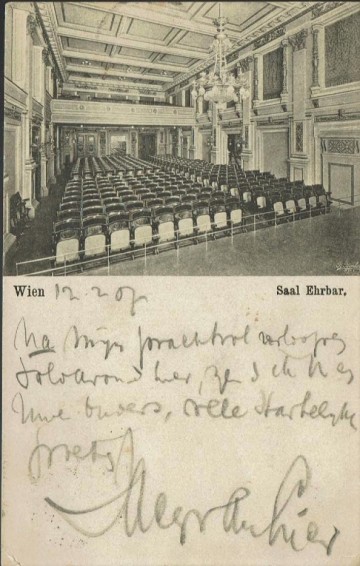 Wien 12-2 07 Saal Ehrbar.
Na mijn prachtvol verloopen
Soloavond hier, zend ik U en
Uwe ouders, vele hartelijke
groeten